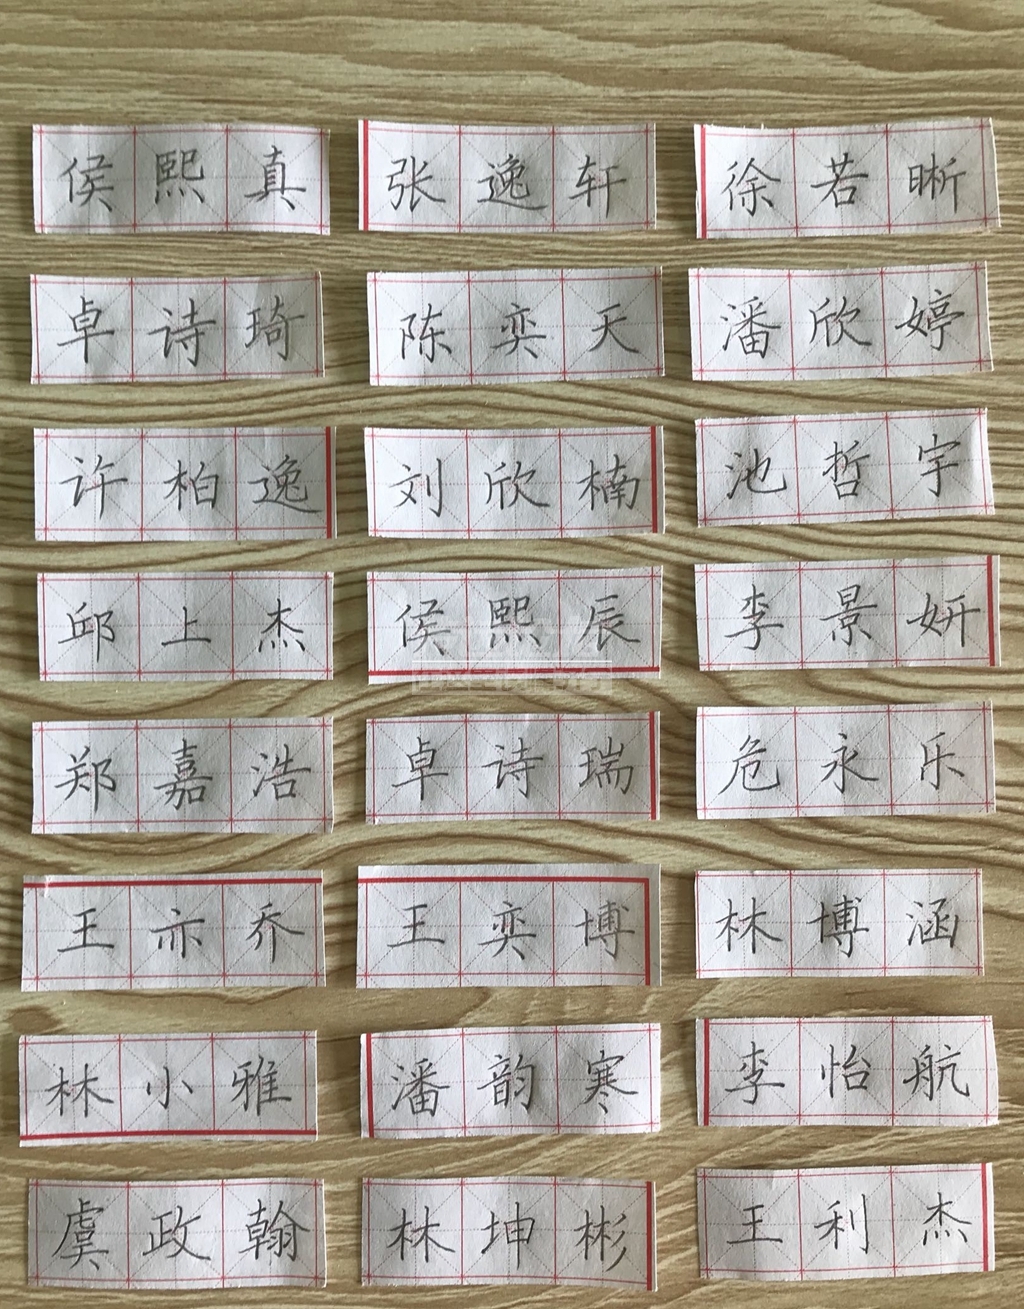 侯熙真 张逸轩 徐若晰
卓诗琦 陈奕天 潘欣婷
许柏逸 刘欣楠 池哲宇
邱上杰 侯熙辰 李景妍
郑嘉浩 卓诗瑞 危永乐
王亦乔 王奕博 林博涵
林小雅 潘韵寒 李怡航
虞政翰 林坤彬 王利杰